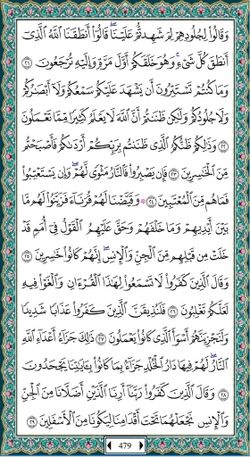 وَقَالُوا۟ لِجُلُودِهِمْ لِمَ شَهِدتُّمْ عَلَيْنَا ۖ قَالُوٓا۟ أَنطَقَنَا ٱللَّهُ ٱلَّذِىٓ
أَنطَقَ كُلَّ شَىْءٍ وَهُوَ خَلَقَكُمْ أَوَّلَ مَرَّةٍ وَإِلَيْهِ تُرْجَعُونَ ٢١
وَمَا كُنتُمْ تَسْتَتِرُونَ أَن يَشْهَدَ عَلَيْكُمْ سَمْعُكُمْ وَلَآ أَبْصَٰرُكُمْ
وَلَا جُلُودُكُمْ وَلَٰكِن ظَنَنتُمْ أَنَّ ٱللَّهَ لَا يَعْلَمُ كَثِيرًا مِّمَّا تَعْمَلُونَ
٢٢ وَذَٰلِكُمْ ظَنُّكُمُ ٱلَّذِى ظَنَنتُم بِرَبِّكُمْ أَرْدَىٰكُمْ فَأَصْبَحْتُم
مِّنَ ٱلْخَٰسِرِينَ ٢٣ فَإِن يَصْبِرُوا۟ فَٱلنَّارُ مَثْوًى لَّهُمْ ۖ وَإِن يَسْتَعْتِبُوا۟
فَمَا هُم مِّنَ ٱلْمُعْتَبِينَ ٢٤ ۞ وَقَيَّضْنَا لَهُمْ قُرَنَآءَ فَزَيَّنُوا۟ لَهُم مَّا
بَيْنَ أَيْدِيهِمْ وَمَا خَلْفَهُمْ وَحَقَّ عَلَيْهِمُ ٱلْقَوْلُ فِىٓ أُمَمٍ قَدْ
خَلَتْ مِن قَبْلِهِم مِّنَ ٱلْجِنِّ وَٱلْإِنسِ ۖ إِنَّهُمْ كَانُوا۟ خَٰسِرِينَ ٢٥
وَقَالَ ٱلَّذِينَ كَفَرُوا۟ لَا تَسْمَعُوا۟ لِهَٰذَا ٱلْقُرْءَانِ وَٱلْغَوْا۟ فِيهِ
لَعَلَّكُمْ تَغْلِبُونَ ٢٦ فَلَنُذِيقَنَّ ٱلَّذِينَ كَفَرُوا۟ عَذَابًا شَدِيدًا
وَلَنَجْزِيَنَّهُمْ أَسْوَأَ ٱلَّذِى كَانُوا۟ يَعْمَلُونَ ٢٧ ذَٰلِكَ جَزَآءُ أَعْدَآءِ ٱللَّهِ
ٱلنَّارُ ۖ لَهُمْ فِيهَا دَارُ ٱلْخُلْدِ ۖ جَزَآءًۢ بِمَا كَانُوا۟ بِـَٔايَٰتِنَا يَجْحَدُونَ
٢٨ وَقَالَ ٱلَّذِينَ كَفَرُوا۟ رَبَّنَآ أَرِنَا ٱلَّذَيْنِ أَضَلَّانَا مِنَ ٱلْجِنِّ
وَٱلْإِنسِ نَجْعَلْهُمَا تَحْتَ أَقْدَامِنَا لِيَكُونَا مِنَ ٱلْأَسْفَلِينَ ٢٩
479